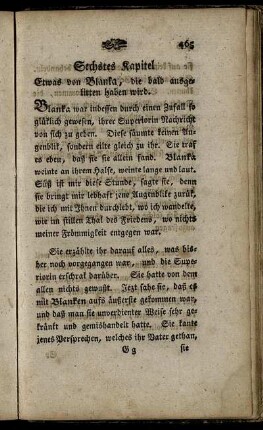 465
Sechstes Kapitel
Etwas von Blanka, die bald ausge-
litten haben wird.
Blanka war indessen durch einen Zufall so
glüklich gewesen, ihrer Superiorin Nachricht
von sich zu geben. Diese säumte keinen Au-
genblik, sondern eilte gleich zu ihr. Sie traf
es eben, daß sie sie allein fand. Blanka
weinte an ihrem Halse, weinte lange und laut.
Süß ist mir diese Stunde, sagte sie, denn
sie bringt mir lebhaft jene Augenblike zurük,
die ich mit Ihnen durchlebt, wo ich wandelte,
wie im stillen Thal des Friedens, wo nichts
meiner Frömmigkeit entgegen war.
Sie erzählte ihr darauf alles, was bis-
her noch vorgegangen war, und die Supe-
riorin erschrak darüber. Sie hatte von dem
allen nichts gewußt. Jezt sahe sie, daß es
mit Blanken aufs äußerste gekommen war,
und daß man sie unverdienter Weise sehr ge-
kränkt und gemishandelt hatte. Sie kante
jenes Versprechen, welches ihr Vater gethan,
G g
sie